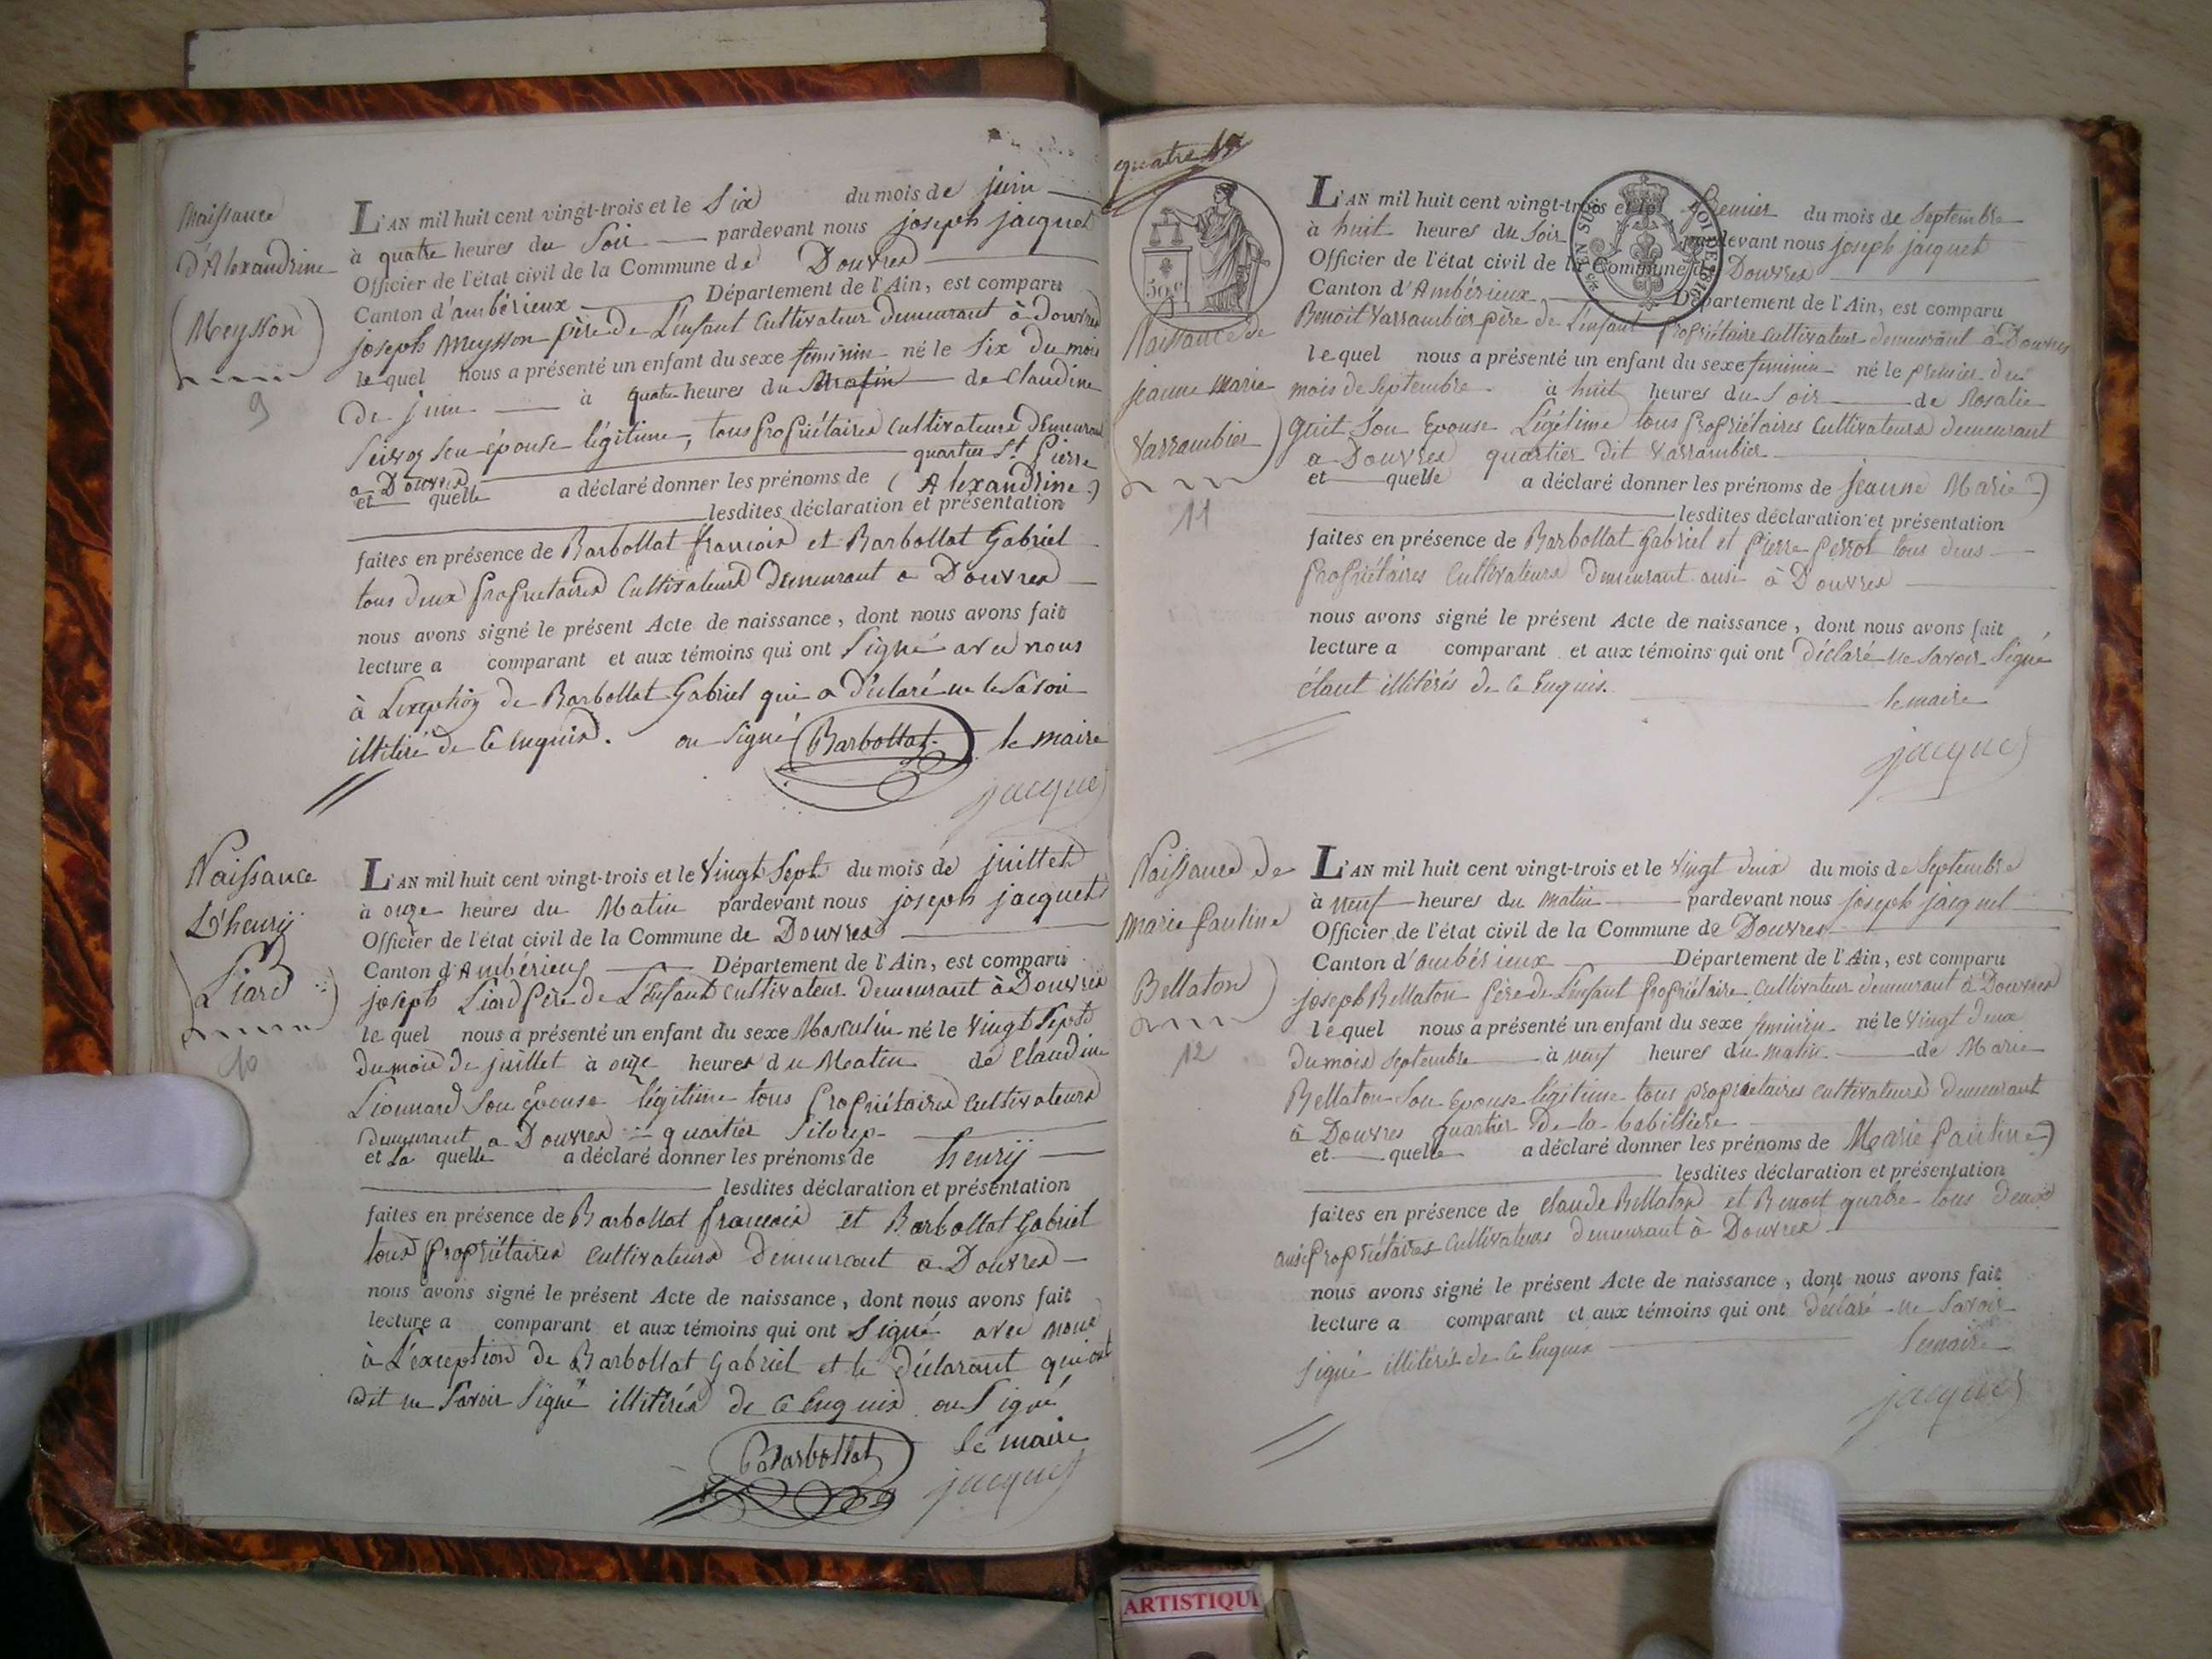 Naissance
d'Alexandrine
(Meysson)
9
L'AN mil huit cent vingt-trois et le Six du mois de juin
à quatre heures du Soir pardevant nous joseph jacquet
Officier de l'état civil de la Commune de Douvres
Canton d'ambérieux Département de l'Ain, est comparu
joseph Meysson père de L'enfant Cultivateur demeurant à Douvres
le quel nous a présenté un enfant du sexe feminin né le Six du mois
de juin à quatre heures du Matin de Claudine
son épouse légitime, tous propriétaires Cultivateurs Demeurant
a Douvres quartier St. Pierre
et quelle a déclaré donner les prénoms de (Alexandrine)
lesdites déclaration et présentation
faites en présence de Barbollat françois et Barbollat Gabriel
tous deux propriétaires Cultivateurs Demeurant a Douvres
nous avons signé le présent Acte de naissance, dont nous avons fait
lecture a comparant et aux témoins qui ont Signé avec nous
à L'exception de Barbollat Gabriel qui a déclaré ne le Savoir
illitéré de ce Enquis. on Signé Barbollat le maire
jacquet
Naissance
D'henrij
(Liard)
10
L'AN mil huit cent vingt-trois et le Vingt Sept du mois de juillet
à onze heures du Matin pardevant nous joseph jacquet
Officier de l'état civil de la Commune de Douvres
Canton d'Ambérieux Département de l'Ain, est comparu
joseph Liard père de L'Enfant Cultivateur Demeurant à Douvres
le quel nous a présenté un enfant du sexe Masculin né le Vingt Sept
du mois de juillet à onze heures du Matin de Claudine
Lionnard Son épouse légitime tous propriétaires Cultivateurs
demeurant a Douvres quartier
et La quelle a déclaré donner les prénoms de henrij
lesdites déclaration et présentation
faites en présence de Barbollat françois et Barbollat Gabriel
tous propriétaires Cultivateurs Demeurant a Douvres
nous avons signé le présent Acte de naissance, dont nous avons fait
lecture a comparant et aux témoins qui ont Signé avec nous
à L'exception de Barbollat Gabriel et le déclarant qui ont
dit ne Savoir Signé illitérés de ce Enquis on Signé
Barbollat le maire
jacquet
quatre
50 c
Naissance de
jeanne Marie
Varrambier)
11
L'AN mil huit cent vingt-trois et le premier du mois de Septembre
à huit heures du Soir pardevant nous joseph jacquet
Officier de l'état civil de la Commune de Douvres
Canton d'Ambérieux Département de l'Ain, est comparu
Benoit Varrambier père de L'enfant propriétaire Cultivateur demeurant à Douvres
le quel nous a présenté un enfant du sexe feminin né le premier du
mois de Septembre à huit heures du Soir de Rosalie
Son Epouse Légitime tous propriétaires Cultivateurs demeurant
a Douvres quartier dit Varrambier
et quelle a déclaré donner les prénoms de Jeanne Marie)
lesdites déclaration et présentation
faites en présence de Barbollat Gabriel et Pierre Perrot tous deus
propriétaires Cultivateurs demeurant ausi à Douvres
nous avons signé le présent Acte de naissance, dont nous avons fait
lecture a comparant et aux témoins qui ont déclaré ne Savoir Signé
étant illitérés de ce Enquis.
le maire
jacquet
Naissance de
Marie pauline
Bellaton)
12
L'AN mil huit cent vingt-trois et le Vingt deux du mois de Septembre
à neuf heures du matin pardevant nous joseph jacquet
Officier de l'état civil de la Commune de Douvres
Canton d'ambérieux Département de l'Ain, est comparu
joseph Bellaton père de L'enfant propriétaire Cultivateur demeurant à Douvres
le quel nous a présenté un enfant du sexe feminin né le Vingt deux
du mois Septembre à neuf heures du matin de Marie
Bellaton Son Epouse légitime tous propriétaires cultivateurs demeurant
à Douvres quartier De la
et quelle a déclaré donner les prénoms de Marie pauline)
lesdites déclaration et présentation
faites en présence de Claude Bellaton et Benoit quatre tous deux
ausi propriétaires Cultivateurs demeurant à Douvres
nous avons signé le présent Acte de naissance, dont nous avons fait
lecture a comparant et aux témoins qui ont déclaré ne Savoir
Signé illitérés de ce Enquis
le maire
jacquet
ARTISTIQU